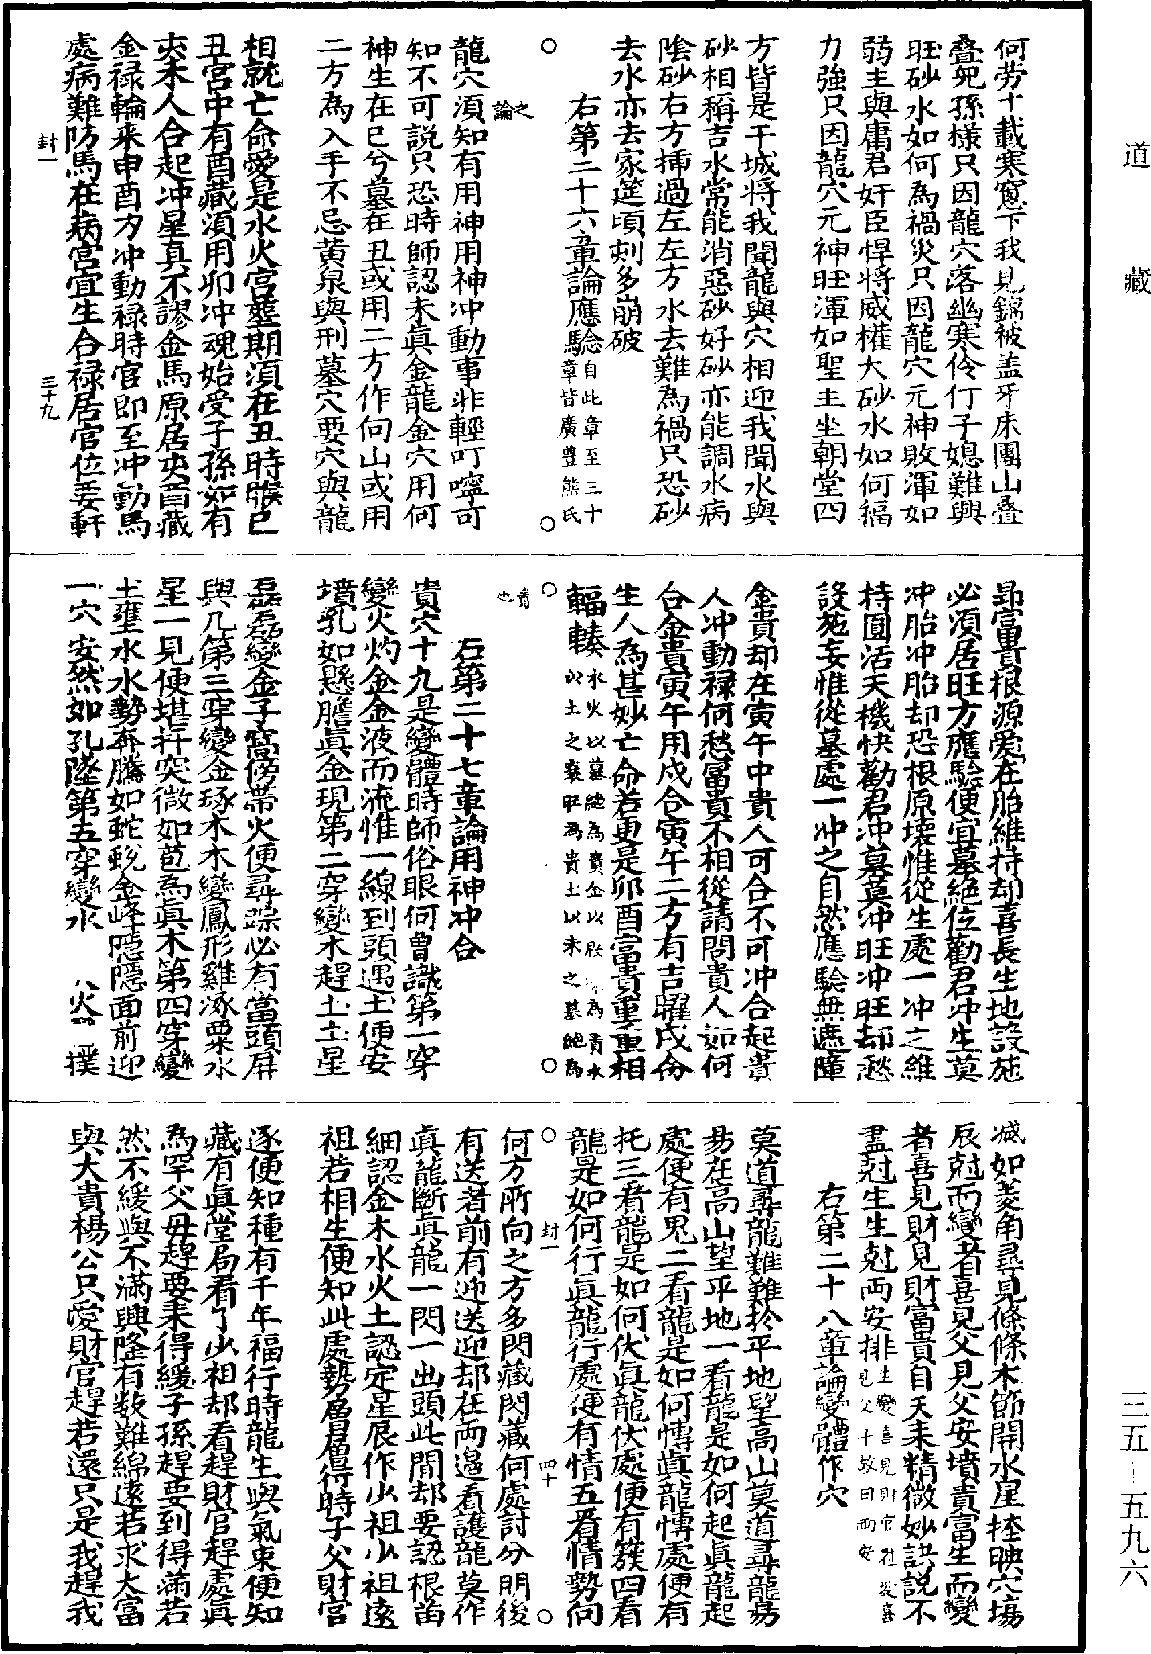 道藏
三五—五九六
何劳十載寒窻下我見錦被盖牙床團山叠
叠兒孫様只因龍穴落幽寒伶仃子媳難與
旺砂水如何為禍災只因龍穴元神敗渾如
弱主與庸君奸臣悍將威權大砂水如何福
力強只因龍穴元神旺渾如聖主坐朝堂四
方皆是干城将我聞龍與穴相迎我聞水與
砂相稱吉水常能消惡砂好砂亦能調水病
陰砂右方揷過左左方水去難為禍只恐砂
去水亦去家筵頃刻多崩破
右第二十六章論應驗自此章至三十章皆廣豊熊氏
之論
龍穴須知有用神用神冲動事非輕叮嚀可
知不可説只恐時師認未真金龍金穴用何
神生在巳兮墓在丑或用二方作向山或用
二方為入手不忌黄泉與刑墓穴要穴與龍
相就亡命愛是水火宫塟期須在丑時候巳
丑宫中有酉藏須用卯冲魂始受子孫如有
夾木人合起冲星真不謬金馬原居夾酉藏
金禄輪来申酉方冲動禄時官即至冲動馬
處病難防馬在病宫宜生合禄居官位要軒
封一
三十九
昻富貴根源爱在胎維持却喜長生地設施
必須居旺方應驗便宜墓絶位勸君冲生莫
冲胎冲胎却恐根原壊惟從生處一冲之維
持圓活天機快勸君冲墓莫冲旺冲旺却愁
設施妄惟從墓處一冲之自然應驗無遮障
金貴却在寅午中貴人可合不可冲合起貴
人冲動禄何愁冨貴不相從請問貴人如何
合金貴寅午用戌合寅午二方有吉曜戌命
生人為甚妙亡命若更是卯酉富貴重重相
輻輳水火以墓絶為貴金以敗為貴水以土之衰甲為貴土以未之墓絶為
貴也
右第二十七章論用神冲合
貴穴十九是變體時師俗眼何曾識第一穿
變火灼金金液而流惟一線到頭遇土便安
墳乳如懸膽真金現第二穿變木趕土土星
磊磊變金子窩傍帶火便尋踪必有當頭屏
與几第三穿變金琢木木變鳳形雞啄粟水
星一見便堪扦突微如苞為真木第四穿變
土壅水水勢奔騰如蛇蜕金峰隱隱面前迎
一穴安然如孔隆第五穿變水火撲
滅如菱角尋見條條木節開水星挂映穴塲
辰尅而變者喜見父見父安墳貴富生而變
者喜見財見財富貴自天来精微妙訣説不
盡尅生生尅两安排生變喜見財官社發喜見父十散曰两安
右第二十八章論變體作穴
莫道尋龍難難於平地望高山莫道尋龍易
易在高山望平地一看龍是如何起真龍起
處便有鬼二看龍是如何博真龍博處便有
托三看龍是如何伏真龍伏處便有簇四看
龍是如何行真龍行處便有情五看情勢向
封一
四十
何方所向之方多閃藏閃藏何處討分明後
有送者前有迎送迎却在两邊看護龍莫作
真龍斷真龍一閃一出頭此間却要認根苗
細認金木水火土認定星辰作少祖少祖逺
祖若相生便知此處勢層層得時子父財官
逐便知種有千年福行時龍生與氣東便知
藏有真堂局看了少祖却看趕財官趕處真
為罕父母趕要来得緩子孫趕要到得滿若
然不緩與不滿興隆有数難綿逺若求大富
與大貴楊公只愛財官趕若還只是我趕我